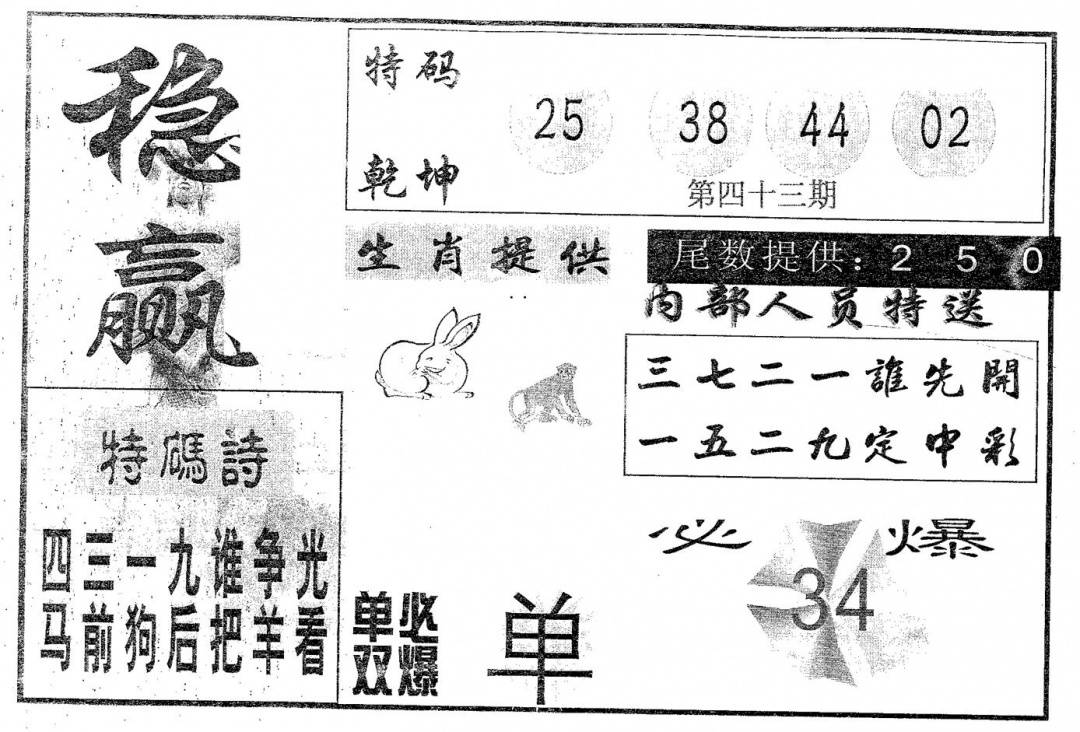 稳
赢
特码
乾坤
25 38 44 02
第四十三期
生肖提供
尾数提供：2 5 0
内部人员特送
三七二一誰先開
一五二九定中彩
特碼詩
四三一九谁争光
马前狗后把羊看
必 爆
34
单双
必爆
单